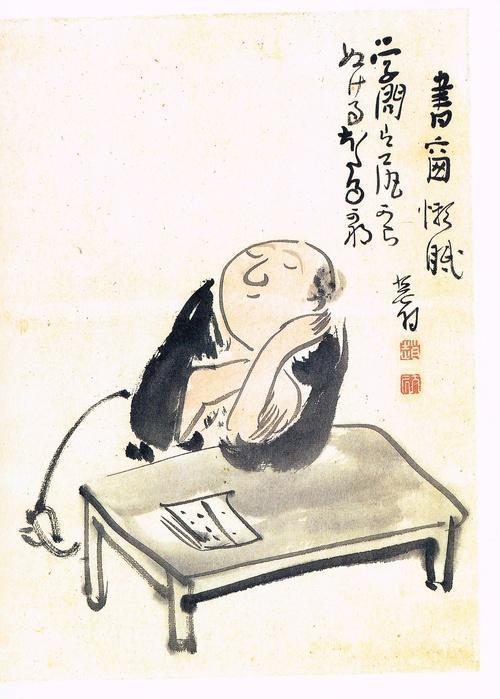 書窗懶眠
学問は尻から
ぬけるほたる哉
蕪村